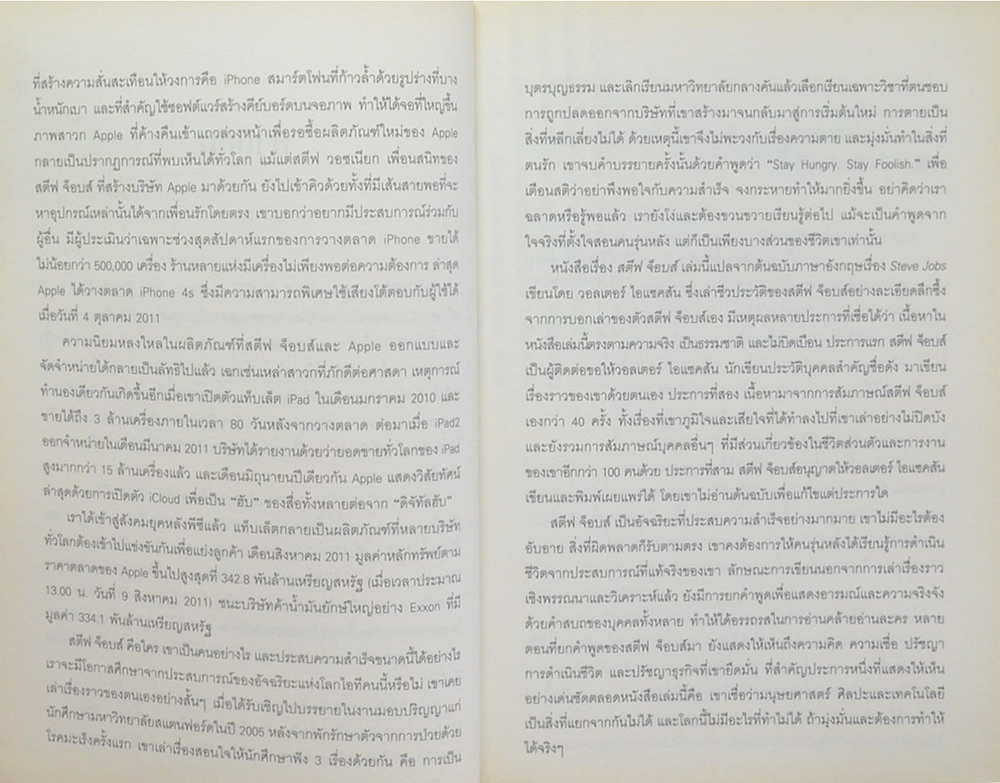 ที่สร้างความสั่นสะเทือนให้วงการคือ iPhone สมาร์ตโฟนที่ก้าวล้ำด้วยรูปร่างที่บาง
น้ำหนักเบา และที่สำคัญใช้ซอฟต์แวร์สร้างคีย์บอร์ดบนจอภาพ ทำให้ได้จอที่ใหญ่ขึ้น
ภาพสาวก Apple ที่ค้างคืนเข้าแถวล่วงหน้าเพื่อรอซื้อผลิตภัณฑ์ใหม่ของ Apple
กลายเป็นปรากฏการณ์ที่พบเห็นได้ทั่วโลก แม้แต่สตีฟ วอซเนียก เพื่อนสนิทของ
สตีฟ จ็อบส์ ที่สร้างบริษัท Apple มาด้วยกัน ยังไปเข้าคิวด้วยทั้งที่มีเส้นสายพอที่จะ
หาอุปกรณ์เหล่านั้นได้จากเพื่อนรักโดยตรง เขาบอกว่าอยากมีประสบการณ์ร่วมกับ
ผู้อื่น มีผู้ประเมินว่าเฉพาะช่วงสุดสัปดาห์แรกของการวางตลาด iPhone ขายได้
ไม่น้อยกว่า 500,000 เครื่อง ร้านหลายแห่งมีเครื่องไม่เพียงพอต่อความต้องการ ล่าสุด
Apple ได้วางตลาด iPhone 4s ซึ่งมีความสามารถพิเศษใช้เสียงโต้ตอบกับผู้ใช้ได้
เมื่อวันที่ 4 ตุลาคม 2011
ความนิยมหลงใหลในผลิตภัณฑ์ที่สตีฟ จ็อบส์และ Apple ออกแบบและ
จัดจำหน่ายได้กลายเป็นลัทธิไปแล้ว เฉกเช่นเหล่าสาวกที่ภักดีต่อศาสดา เหตุการณ์
ทำนองเดียวกันเกิดขึ้นอีกเมื่อเขาเปิดตัวแท็บเล็ต iPad ในเดือนมกราคม 2010 และ
ขายได้ถึง 3 ล้านเครื่องภายในเวลา 80 วันหลังจากวางตลาด ต่อมาเมื่อ iPad2
ออกจำหน่ายในเดือนมีนาคม 2011 บริษัทได้รายงานด้วยว่ายอดขายทั่วโลกของ iPad
สูงมากกว่า 15 ล้านเครื่องแล้ว และเดือนมิถุนายนปีเดียวกัน Apple แสดงวิสัยทัศน์
ล่าสุดด้วยการเปิดตัว iCloud เพื่อเป็น “ฮับ” ของสื่อทั้งหลายต่อจาก “ดิจิทัลฮับ”
เราได้เข้าสู่สังคมยุคหลังพีซีแล้ว แท็บเล็ตกลายเป็นผลิตภัณฑ์ที่หลายบริษัท
ทั่วโลกต้องเข้าไปแข่งขันกันเพื่อแย่งลูกค้า เดือนสิงหาคม 2011 มูลค่าหลักทรัพย์ตาม
ราคาตลาดของ Apple ขึ้นไปสูงสุดที่ 342.8 พันล้านเหรียญสหรัฐ (เมื่อเวลาประมาณ
13.00 น. วันที่ 9 สิงหาคม 2011) ชนะบริษัทค้าน้ำมันยักษ์ใหญ่อย่าง Exxon ที่มี
มูลค่า 334.1 พันล้านเหรียญสหรัฐ
สตีฟ จ็อบส์ คือใคร เขาเป็นคนอย่างไร และประสบความสำเร็จขนาดนี้ได้อย่างไร
เราจะมีโอกาสศึกษาจากประสบการณ์ของอัจฉริยะแห่งโลกไอทีคนนี้หรือไม่ เขาเคย
เล่าเรื่องราวของตนเองอย่างสั้นๆ เมื่อได้รับเชิญไปบรรยายในงานมอบปริญญาแก่
นักศึกษามหาวิทยาลัยสแตนฟอร์ดในปี 2005 หลังจากพักรักษาตัวจากการป่วยด้วย
โรคมะเร็งครั้งแรก เขาเล่าเรื่องสอนใจให้นักศึกษาฟัง 3 เรื่องด้วยกัน คือ การเป็น
บุตรบุญธรรม และเลิกเรียนมหาวิทยาลัยกลางคันแล้วเลือกเรียนเฉพาะวิชาที่ตนชอบ
การถูกปลดออกจากบริษัทที่เขาสร้างมาจนกลับมาสู่การเริ่มต้นใหม่ การตายเป็น
สิ่งที่หลีกเลี่ยงไม่ได้ ด้วยเหตุนี้เขาจึงไม่พะวงกับเรื่องความตาย และมุ่งมั่นทำในสิ่งที่
ตนรัก เขาจบคำบรรยายครั้งนั้นด้วยคำพูดว่า “Stay Hungry. Stay Foolish.” เพื่อ
เตือนสติว่าอย่าพึงพอใจกับความสำเร็จ จงกระหายทำให้มากยิ่งขึ้น อย่าคิดว่าเรา
ฉลาดหรือรู้พอแล้ว เรายังโง่และต้องขวนขวายเรียนรู้ต่อไป แม้จะเป็นคำพูดจาก
ใจจริงที่ตั้งใจสอนคนรุ่นหลัง แต่ก็เป็นเพียงบางส่วนของชีวิตเขาเท่านั้น
หนังสือเรื่อง สตีฟ จ็อบส์ เล่มนี้แปลจากต้นฉบับภาษาอังกฤษเรื่อง Steve Jobs
เขียนโดย วอลเตอร์ ไอแซคสัน ซึ่งเล่าชีวประวัติของสตีฟ จ็อบส์อย่างละเอียดลึกซึ้ง
จากการบอกเล่าของตัวสตีฟ จ็อบส์เอง มีเหตุผลหลายประการที่เชื่อได้ว่า เนื้อหาใน
หนังสือเล่มนี้ตรงตามความจริง เป็นธรรมชาติ และไม่บิดเบือน ประการแรก สตีฟ จ็อบส์
เป็นผู้ติดต่อขอให้วอลเตอร์ ไอแซคสัน นักเขียนประวัติบุคคลสำคัญชื่อดัง มาเขียน
เรื่องราวของเขาด้วยตนเอง ประการที่สอง เนื้อหามาจากการสัมภาษณ์สตีฟ จ็อบส์
เองกว่า 40 ครั้ง ทั้งเรื่องที่เขาภูมิใจและเสียใจที่ได้ทำลงไปที่เขาเล่าอย่างไม่ปิดบัง
และยังรวมการสัมภาษณ์บุคคลอื่นๆ ที่มีส่วนเกี่ยวข้องในชีวิตส่วนตัวและการงาน
ของเขาอีกกว่า 100 คนด้วย ประการที่สาม สตีฟ จ็อบส์อนุญาตให้วอลเตอร์ ไอแซคสัน
เขียนและพิมพ์เผยแพร่ได้ โดยเขาไม่อ่านต้นฉบับเพื่อแก้ไขแต่ประการใด
สตีฟ จ็อบส์ เป็นอัจฉริยะที่ประสบความสำเร็จอย่างมากมาย เขาไม่มีอะไรต้อง
อับอาย สิ่งที่ผิดพลาดก็รับตามตรง เขาคงต้องการให้คนรุ่นหลังได้เรียนรู้การดำเนิน
ชีวิตจากประสบการณ์ที่แท้จริงของเขา ลักษณะการเขียนนอกจากการเล่าเรื่องราว
เชิงพรรณนาและวิเคราะห์แล้ว ยังมีการยกคำพูดเพื่อแสดงอารมณ์และความจริงจัง
ด้วยคำสบถของบุคคลทั้งหลาย ทำให้ได้อรรถรสในการอ่านคล้ายอ่านละคร หลาย
ตอนที่ยกคำพูดของสตีฟ จ็อบส์มา ยังแสดงให้เห็นถึงความคิด ความเชื่อ ปรัชญา
การดำเนินชีวิต และปรัชญาธุรกิจที่เขายึดมั่น ที่สำคัญประการหนึ่งที่แสดงให้เห็น
อย่างเด่นชัดตลอดหนังสือเล่มนี้คือ เขาเชื่อว่ามนุษยศาสตร์ ศิลปะและเทคโนโลยี
เป็นสิ่งที่แยกจากกันไม่ได้ และโลกนี้ไม่มีอะไรที่ทำไม่ได้ ถ้ามุ่งมั่นและต้องการทำให้
ได้จริงๆ